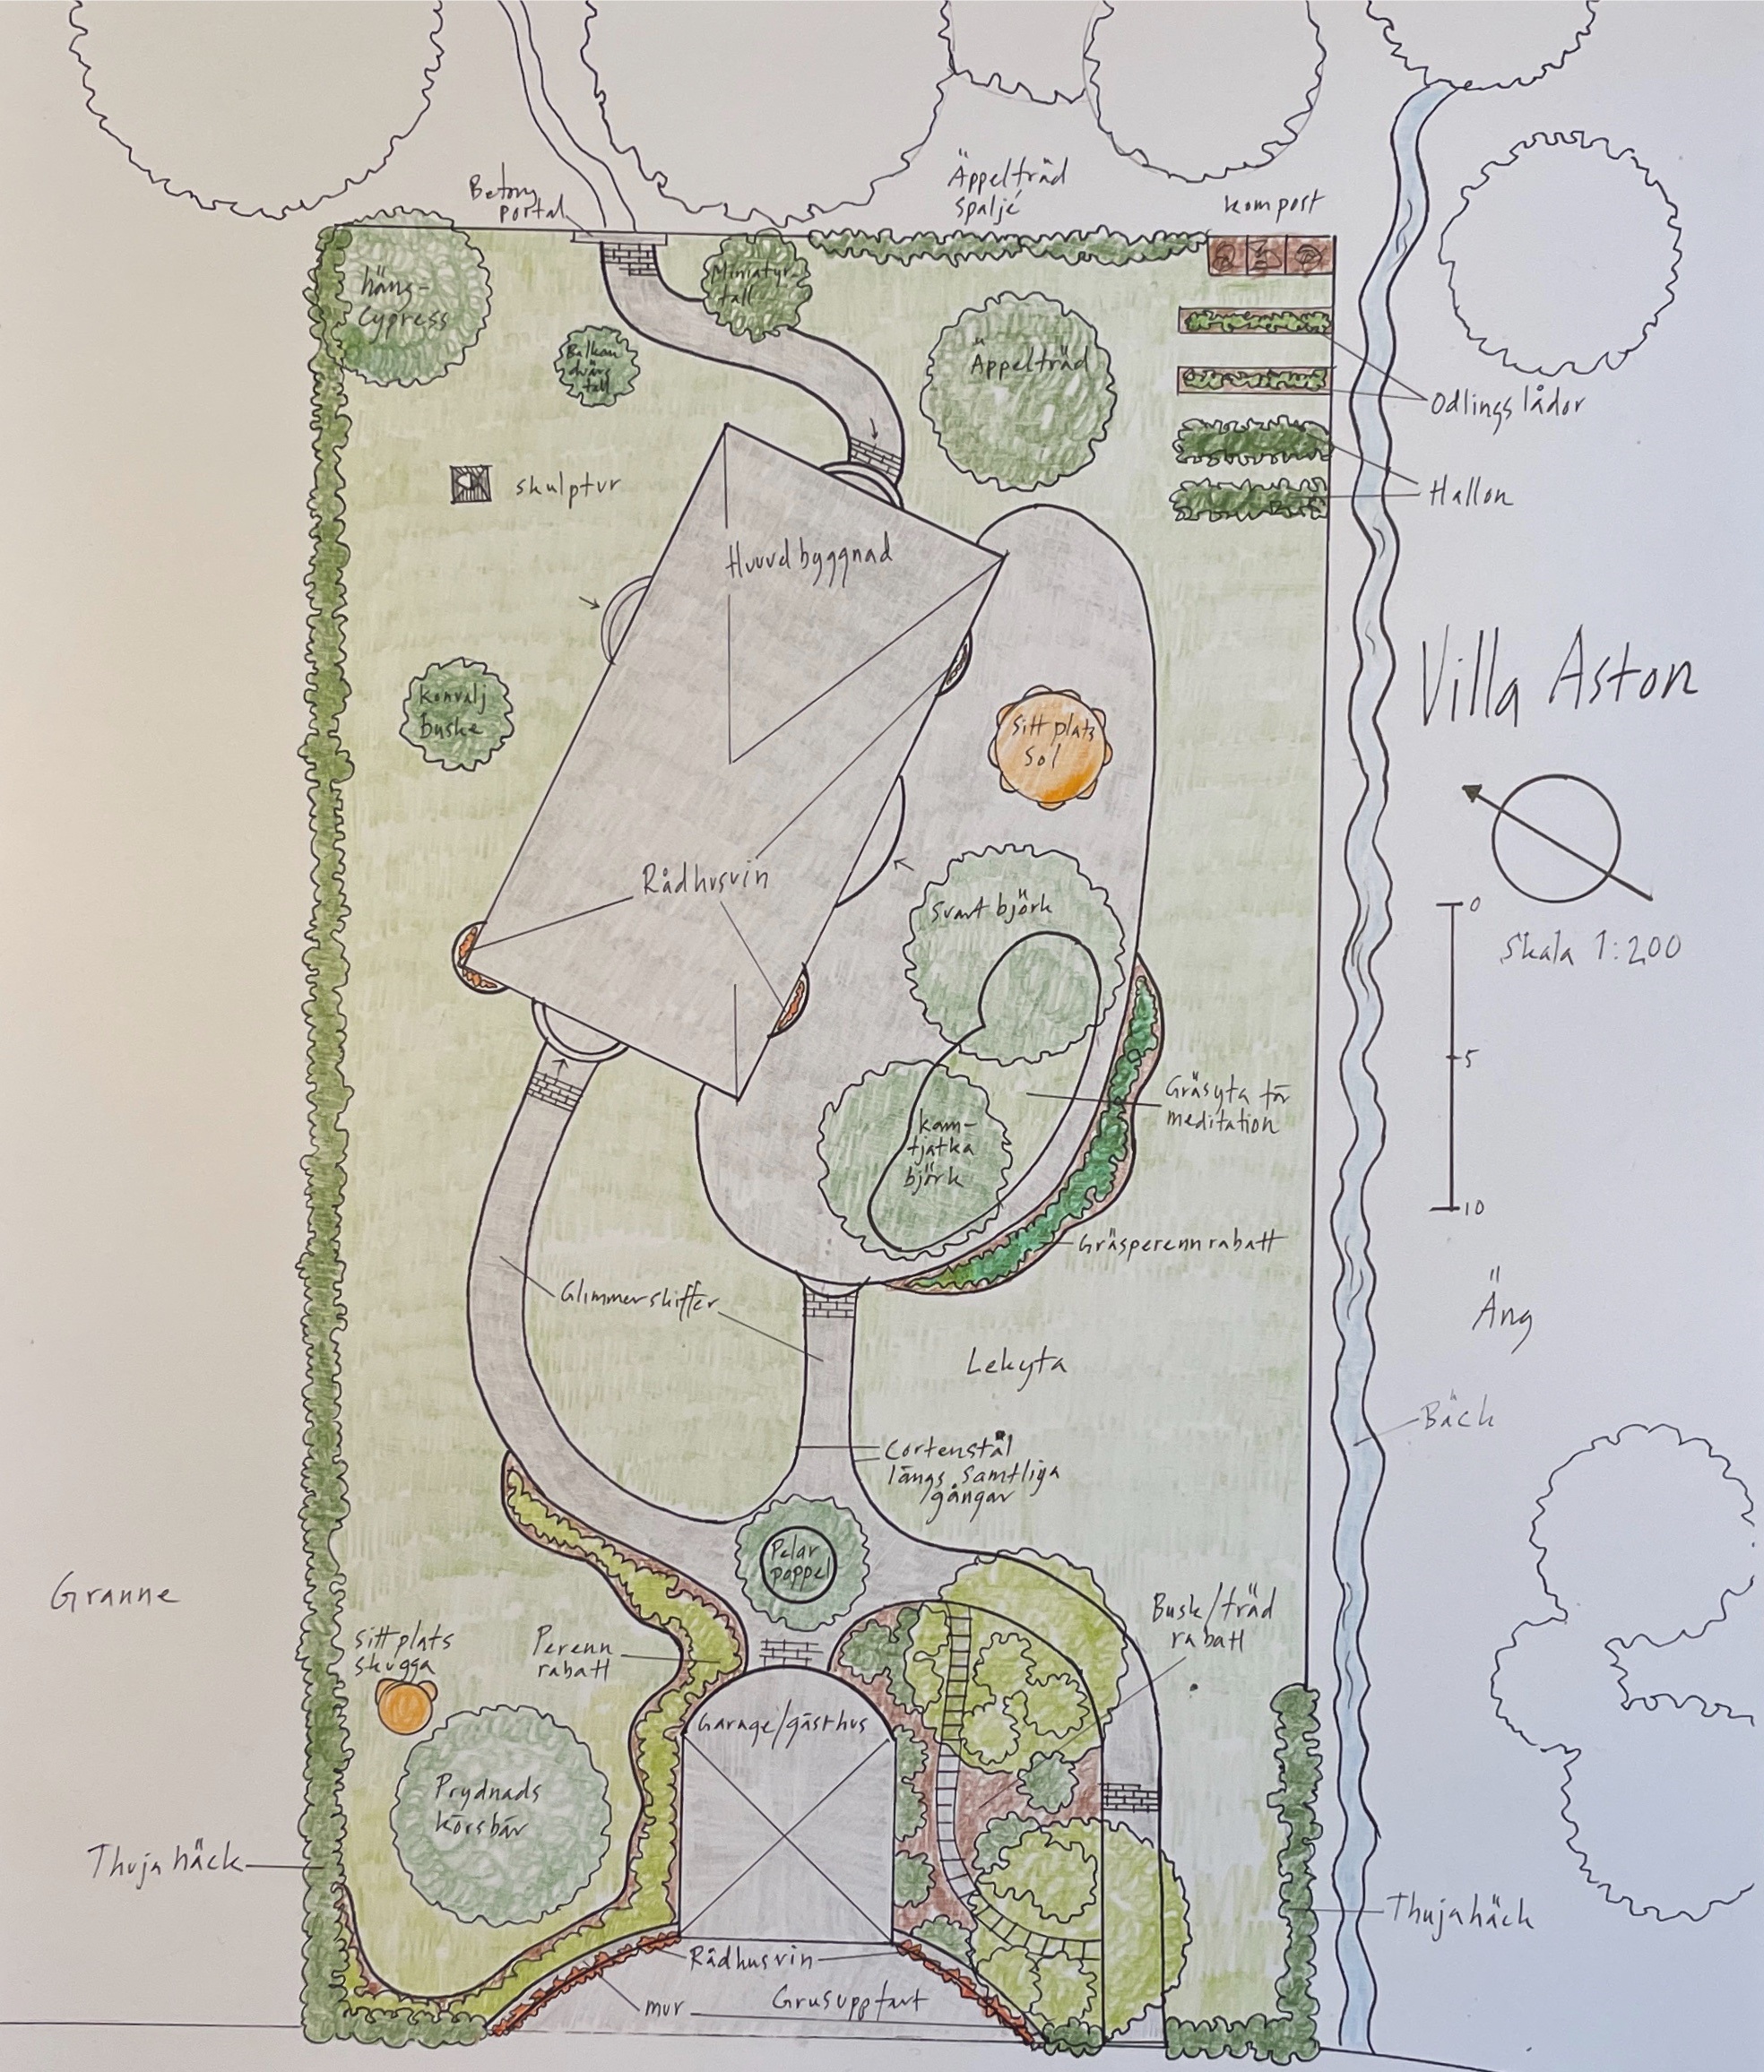 Betong
portal
Äppelträd
spaljé
kompost
häng-
Cypress
Miniatyr
tall
Balkan
dvärg
tall
Äppelträd
Odlingslådor
skulptur
Hallon
Huvudbyggnad
Villa Aston
konvalj
buske
Sittplats
Sol
Rådhusvin
Svartbjörk
0
Skala 1:200
5
10
Gräsyta för
meditation
kam-
tjatka
björk
Gräsperennrabatt
Glimmerskiffer
Äng
Lekyta
Bäck
Cortenstål
längs samtliga
gångar
Pelar
poppel
Granne
Busk/träd
rabatt
Sittplats
skugga
Perenn
rabatt
Garage/gästhus
Prydnads
körsbär
Thujahäck
Thujahäck
Rådhusvin
mur
Grusuppfart